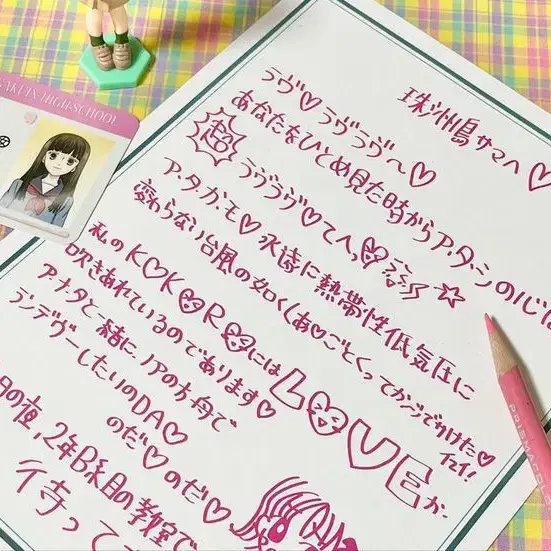 HIGH-SCHOOL
珠洲島サマへ♡
ラヴ♡ラヴラヴ〜♡
あなたをひとめ見た時からア・タ・シの心
超ラヴラヴ♡てへ
ア・タ・カ・モ♡永遠に熱帯性低気圧に
変わらない台風の如く(あ♡ごとくってかごでかけた♡
イエイ!
私のK♡K♡R♡にはL♡VEが
吹きあれているのであります♡
アナタと一緒にノアの方舟で
ランデヴーしたいのDA♡
のだ♡のだ♡
日の夜、2年B組の教室で
待って